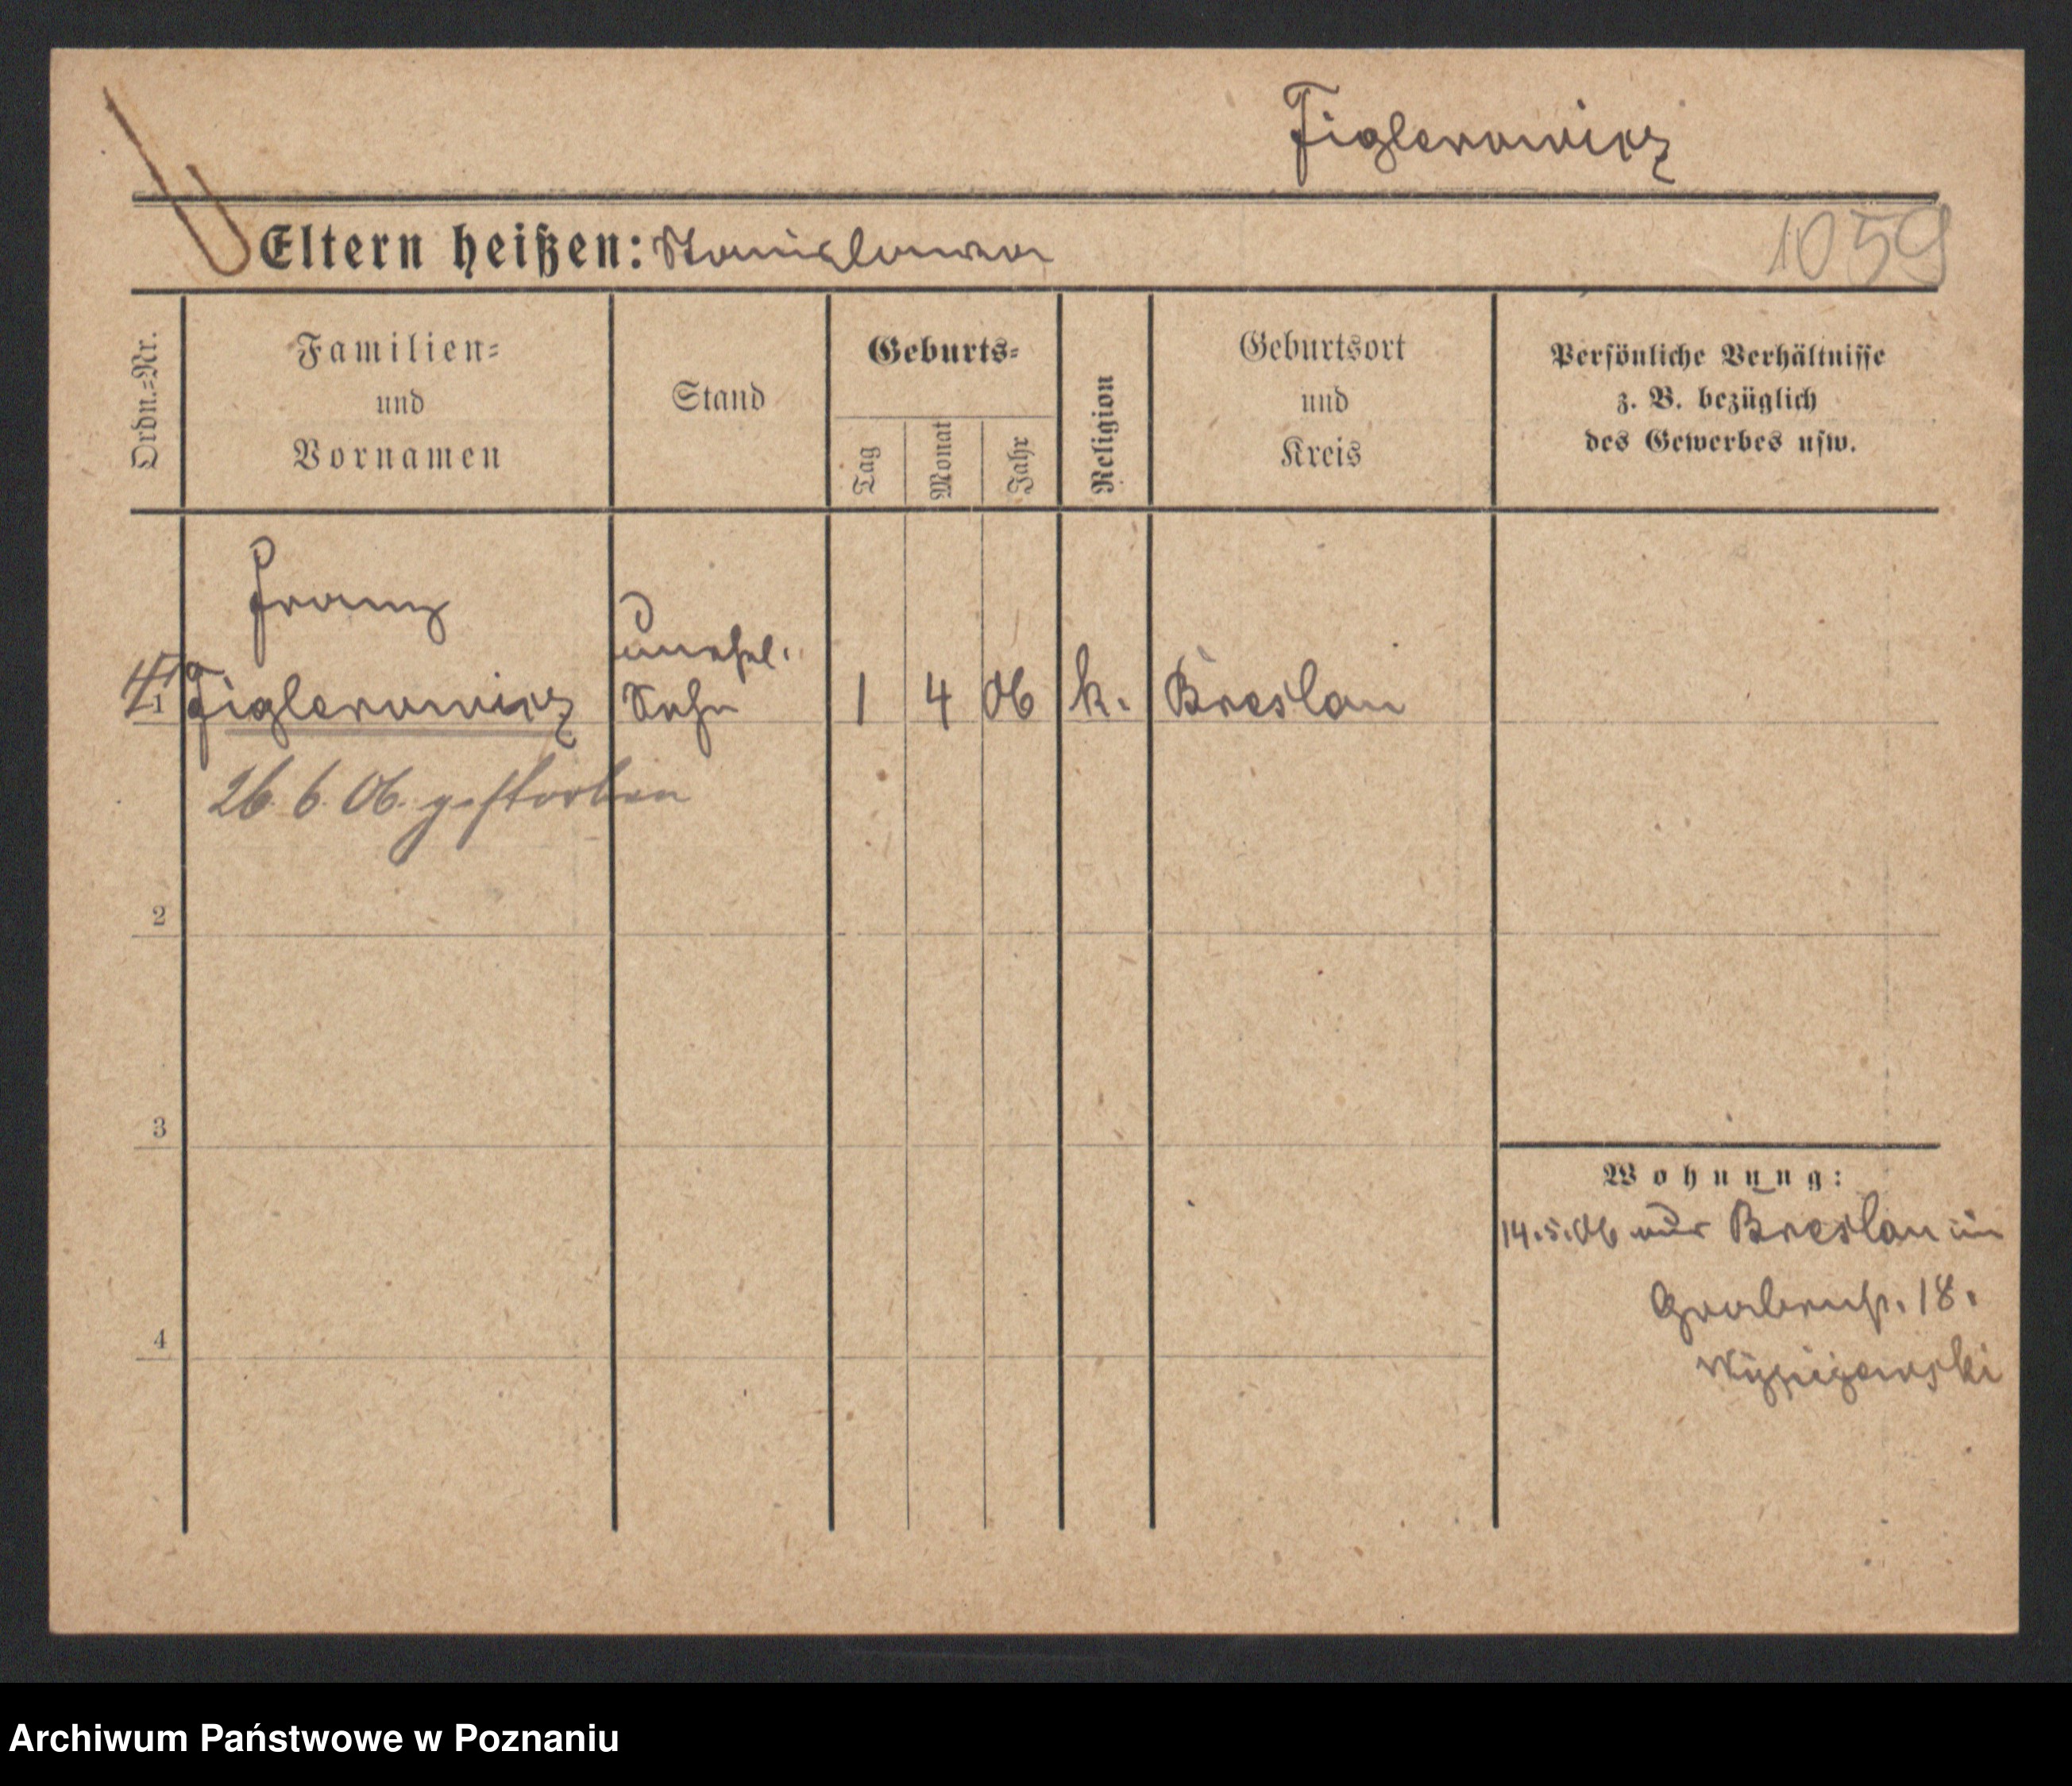 Figlerowicz
Eltern heißen: Stanislawa
1059
Ordn.=Nr.
Familien=
und
Vornamen
Stand
Geburts=
Tag
Monat
Jahr
Religion
Geburtsort
und
Kreis
Persönliche Verhältnisse
z. B. bezüglich
des Gewerbes usw.
Franz
unehel.
1 Figlerowicz Sohn 1 4 06 k. Breslau
26. 6. 06. gestorben
2
3
4
Wohnung:
14.5.06 aus Breslau in
18.
Archiwum Państwowe w Poznaniu